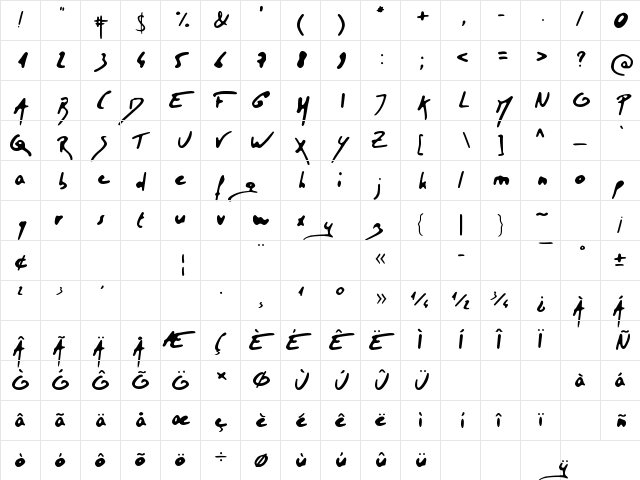 ! " # $ % & ' ( ) * + , - . / 0
1 2 3 4 5 6 7 8 9 : ; < = > ? @
A B C D E F G H I J K L M N O P
Q R S T U V W X Y Z [ \ ] ^ _ `
a b c d e f g h i j k l m n o p
q r s t u v w x y z { | } ~ ¡
¢ ¦ ¨ « - ¯ ° ±
² ³ ´ · ¸ ¹ º » ¼ ½ ¾ ¿ À Á
Â Ã Ä Å Æ Ç È É Ê Ë Ì Í Î Ï Ñ
Ò Ó Ô Õ Ö × Ø Ù Ú Û Ü à á
â ã ä å æ ç è é ê ë ì í î ï ñ
ò ó ô õ ö ÷ ø ù ú û ü ÿ